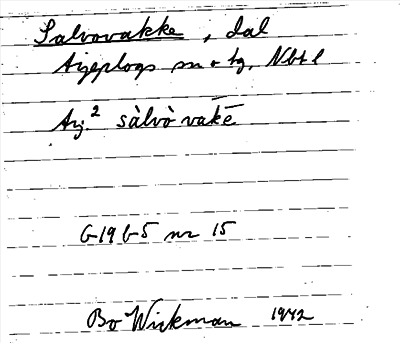 Salvovakke, dal
Arjeplogs sn o tg. Nbt l
Arj.² sàlvò vakē
G-19 b-5 nr 15
Bo Wickman 1942